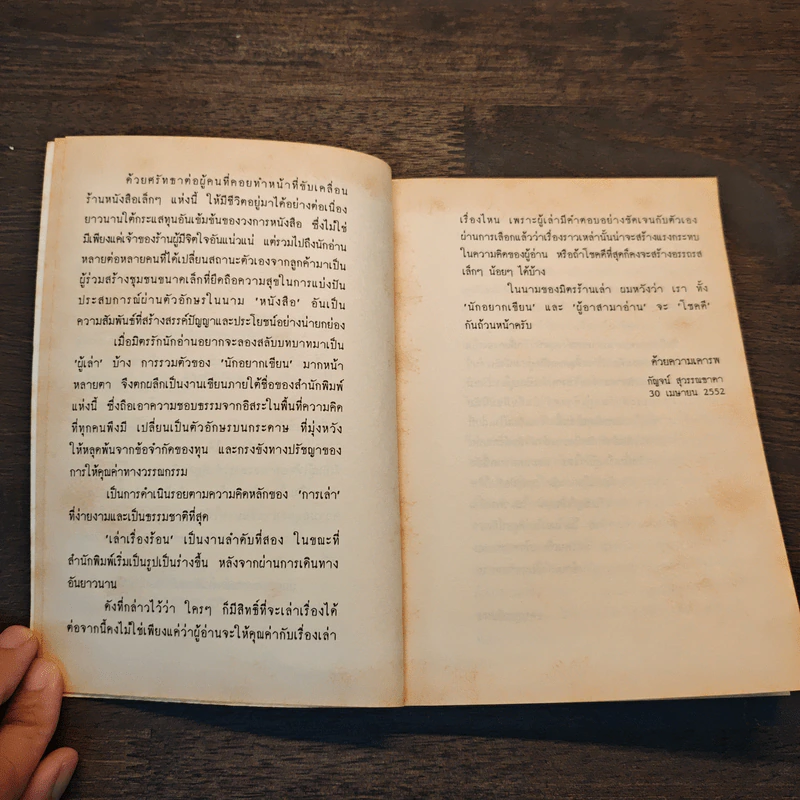 ด้วยศรัทธาต่อผู้คนที่คอยทำหน้าที่ขับเคลื่อน
ร้านหนังสือเล็กๆ แห่งนี้ ให้มีชีวิตอยู่มาได้อย่างต่อเนื่อง
ยาวนานใต้กระแสทุนอันเข้มข้นของวงการหนังสือ ซึ่งไม่ใช่
มีเพียงแค่เจ้าของร้านผู้มีจิตใจอันแน่วแน่ แต่รวมไปถึงนักอ่าน
หลายต่อหลายคนที่ได้เปลี่ยนสถานะตัวเองจากลูกค้ามาเป็น
ผู้ร่วมสร้างชุมชนขนาดเล็กที่ยึดถือความสุขในการแบ่งปัน
ประสบการณ์ผ่านตัวอักษรในนาม 'หนังสือ' อันเป็น
ความสัมพันธ์ที่สร้างสรรค์ปัญญาและประโยชน์อย่างน่ายกย่อง
เมื่อมิตรรักนักอ่านอยากจะลองสลับบทบาทมาเป็น
'ผู้เล่า' บ้าง การรวมตัวของ 'นักอยากเขียน' มากหน้า
หลายตา จึงตกผลึกเป็นงานเขียนภายใต้ชื่อของสำนักพิมพ์
แห่งนี้ ซึ่งถือเอาความชอบธรรมจากอิสระในพื้นที่ความคิด
ที่ทุกคนพึงมี เปลี่ยนเป็นตัวอักษรบนกระดาษ ที่มุ่งหวัง
ให้หลุดพ้นจากข้อจำกัดของทุน และกรงขังทางปรัชญาของ
การให้คุณค่าทางวรรณกรรม
เป็นการดำเนินรอยตามความคิดหลักของ 'การเล่า'
ที่ง่ายงามและเป็นธรรมชาติที่สุด
'เล่าเรื่องร้อน' เป็นงานลำดับที่สอง ในขณะที่
สำนักพิมพ์เริ่มเป็นรูปเป็นร่างขึ้น หลังจากผ่านการเดินทาง
อันยาวนาน
ดังที่กล่าวไว้ว่า ใครๆ ก็มีสิทธิ์ที่จะเล่าเรื่องได้
ต่อจากนี้คงไม่ใช่เพียงแค่ว่าผู้อ่านจะให้คุณค่ากับเรื่องเล่า
เรื่องไหน เพราะผู้เล่ามีคำตอบอย่างชัดเจนกับตัวเอง
ผ่านการเลือกแล้วว่าเรื่องราวเหล่านั้นน่าจะสร้างแรงกระทบ
ในความคิดของผู้อ่าน หรือถ้าโชคดีที่สุดก็คงจะสร้างอรรถรส
เล็กๆ น้อยๆ ได้บ้าง
ในนามของมิตรร้านเล่า ผมหวังว่า เรา ทั้ง
'นักอยากเขียน' และ 'ผู้อาสามาอ่าน' จะ 'โชคดี'
กันถ้วนหน้าครับ
ด้วยความเคารพ
กัญจน์ สุวรรณชาตา
30 เมษายน 2552